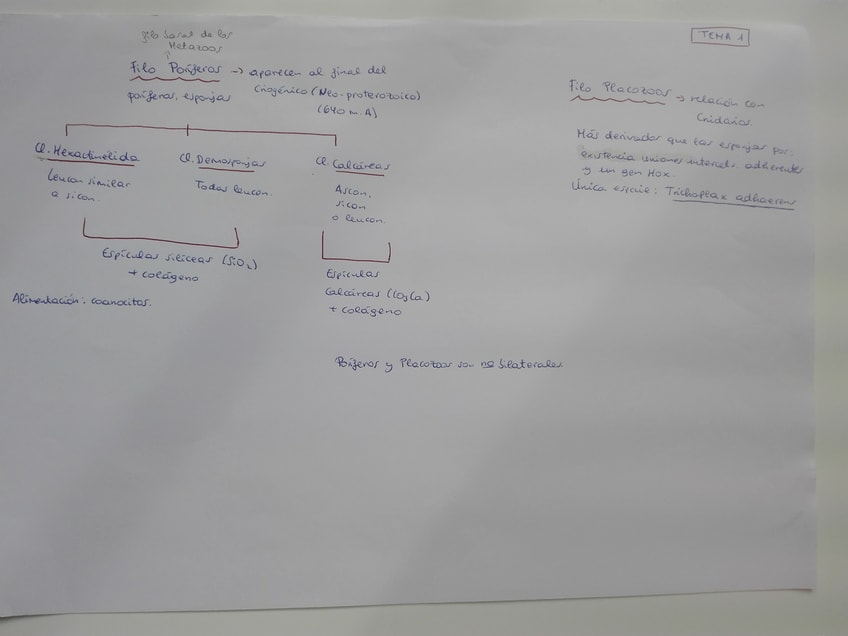 TEMA 1
filo basal de los
Metazoos
Filo Poríferos → aparecen al final del
Criogénico (Neo-proterozoico)
(640 m.A)
poríferos, esponjas
Cl. Hexactinélida
Leucon similar
a sicon.
Cl. Demospongias
Todas leucon.
Cl. Calcáreas
Ascon,
sicon
o leucon.
Espículas silíceas (SiO2)
+ colágeno
Espículas
Calcáreas (CO3Ca)
+ colágeno
Alimentación: coanocitos.
Filo Placozoos → relación con
Cnidarios.
Más derivados que las esponjas por:
existencia uniones intercel. adherentes
y un gen Hox.
Única especie: Trichoplax adhaerens
Poríferos y Placozoos son no bilaterales